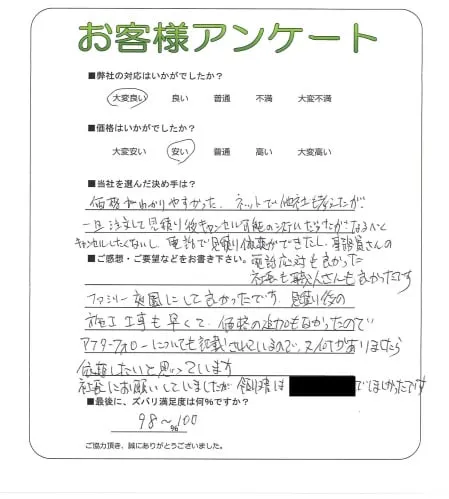 お客様アンケート
■弊社の対応はいかがでしたか？
大変良い 良い 普通 不満 大変不満
■価格はいかがでしたか？
大変安い 安い 普通 高い 大変高い
■当社を選んだ決め手は？
価格がわかりやすかった。ネットで他社も考えたが
一旦注文して見積り後キャンセル可能のシステムだったがなるべく
キャンセルしたくないし、電話で見積り依頼ができたし、事務員さんの
電話応対も良かった
■ご感想・ご要望などをお書き下さい。
社長も職人さんも良かったです
ファミリー庭園にして良かったです。見積り後の
施工工事も早くて、価格の追加もなかったので
アフターフォローについても記載されているので、又何かありましたら
依頼したいと思っています
社長にお願いしていましたが領収書は でほしかったです
■最後に、ズバリ満足度は何％ですか？
98～100
％
ご協力頂き、誠にありがとうございました。